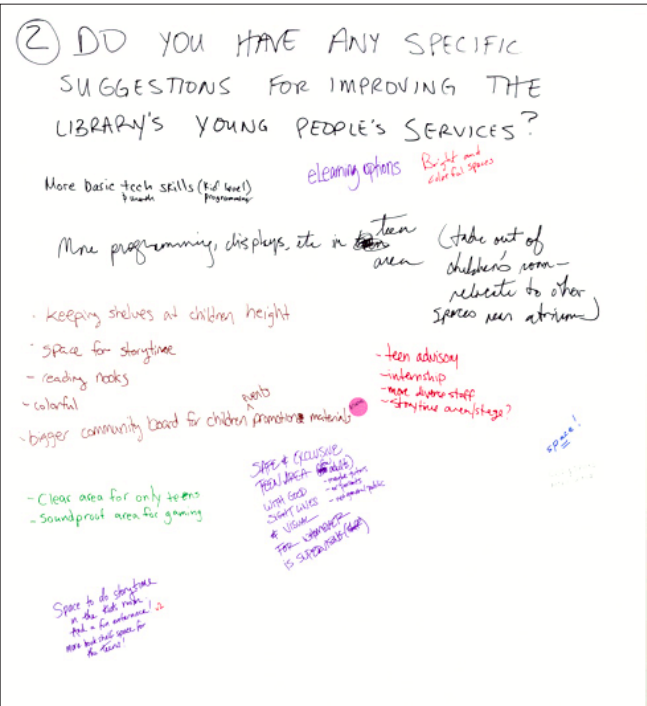 ② DO YOU HAVE ANY SPECIFIC
SUGGESTIONS FOR IMPROVING THE
LIBRARY'S YOUNG PEOPLE'S SERVICES?
More basic tech skills (kid level)
programming
eLearning options
Bright and
colorful spaces
More programming, displays, etc in teen
area
(take out of
children's room -
relocate to other
spaces near atrium)
· Keeping shelves at children height
· Space for storytime
- reading nooks
- colorful
- bigger community board for children promotions materials
events
- teen advisory
- internship
- more diverse staff
- storytime area/stage?
space!
- Clear area for only teens
- Soundproof area for gaming
SAFE & EXCLUSIVE
TEEN AREA
WITH GOOD
SIGHT LINES
& VISUAL
FOR WHOMEVER
IS SUPERVISING
Space to do storytime
in the kids room.
And a fun entrance!
more book shelf space for
the Teens!